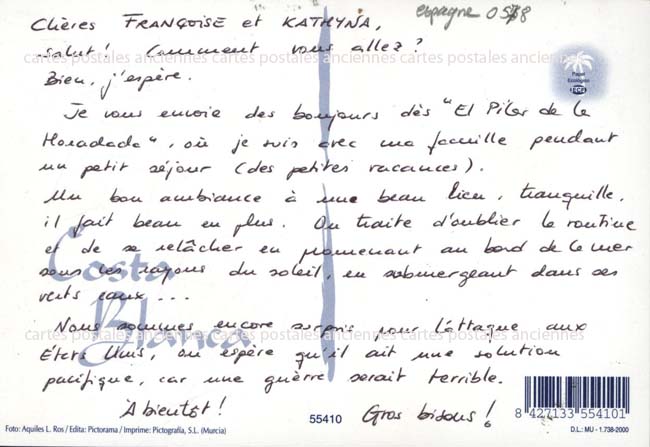 espagne 0578
Chères FRANÇOISE et KATHYNA,
Salut! Comment vous allez?
cartes postales anciennes cartes postales anciennes cartes postales anciennes
Bien, j'espère.
Papel
Ecológico
ECF
Je vous envoie des bonjours dès "El Pilar de la
Horadada", où je suis avec ma famille pendant
un petit séjour (des petites vacances).
Un bon ambiance à une beau lieu, tranquille,
il fait beau en plus. On traite d'oublier la routine
et de se relâcher en promenant au bord de la mer
sous les rayons du soleil, en submergeant dans ses
verts eaux...
Costa
Blanca
Nous sommes encore surpris pour l'attaque aux
cartes postales anciennes cartes postales anciennes cartes postales anciennes
Etats Unis, on espère qu'il ait une solution
pacifique, car une guèrre serait terrible.
A bientôt! Gros bisous!
Foto: Aquiles L. Ros / Edita: Pictorama / Imprime: Pictografía, S.L. (Murcia)
55410
8 427133 554101
D.L.: MU - 1.738-2000